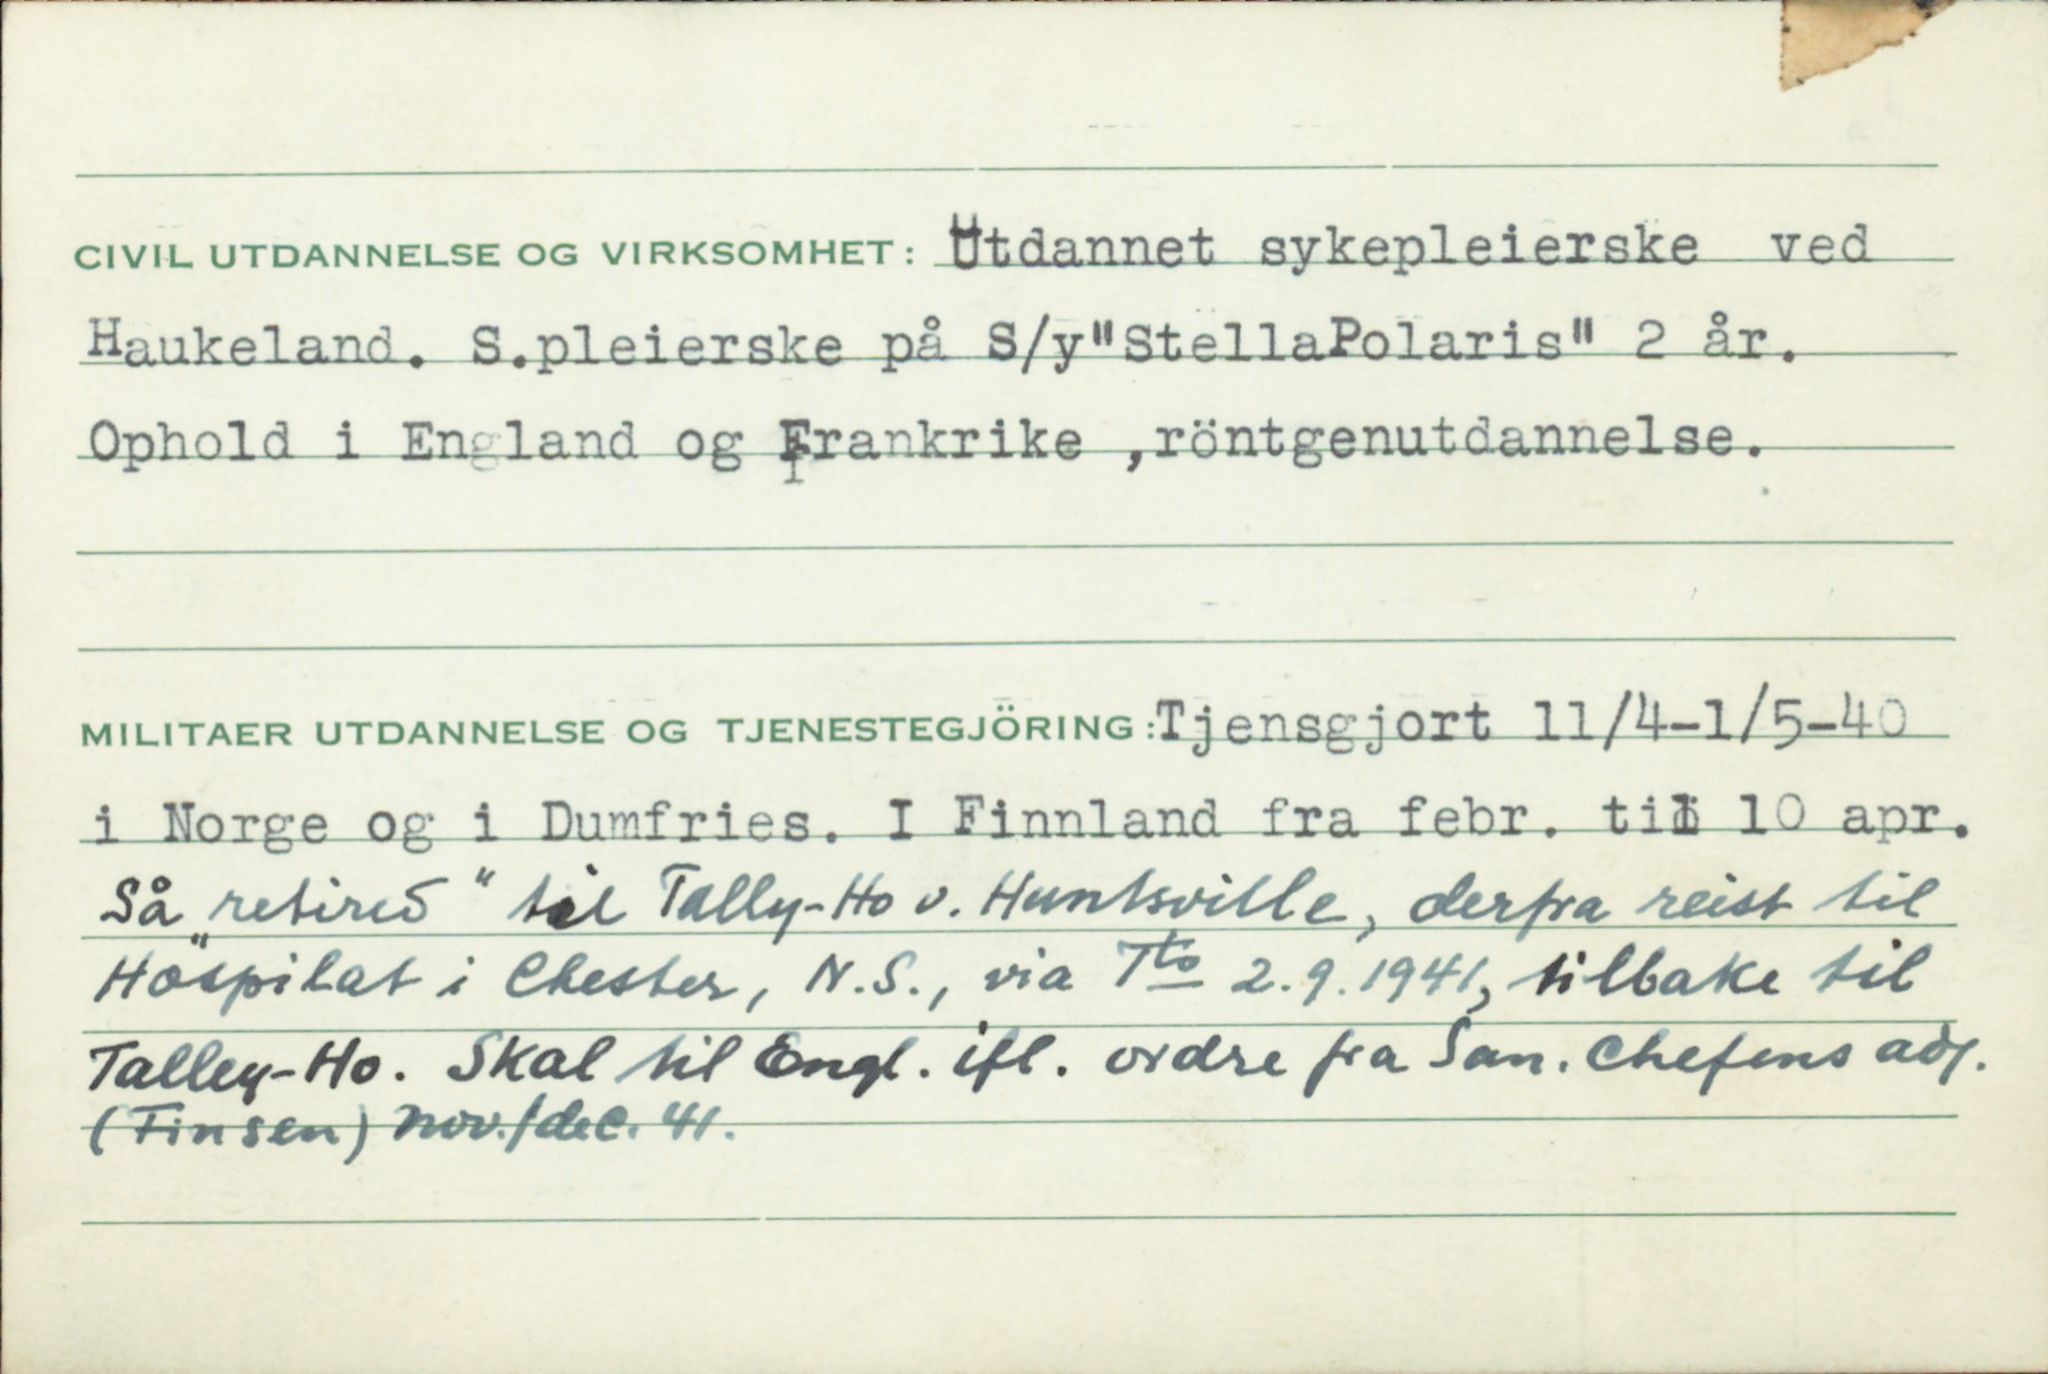 CIVIL UTDANNELSE OG VIRKSOMHET: Utdannet sykepleierske ved
Haukeland. S.pleierske på S/y"StellaPolaris" 2 år.
Ophold i England og Frankrike ,röntgenutdannelse.
MILITAER UTDANNELSE OG TJENESTEGJÖRING: Tjensgjort 11/4-1/5-40
i Norge og i Dumfries. I Finnland fra febr. til 10 apr.
Så „retired" til Tally-Ho v. Huntsville, derfra reist til
Hospitat i Chester, N.S., via Tto 2.9.1941, tilbake til
Talley-Ho. Skal til Engl. ifl. ordre fra San. Chefens adj.
(Finsen) nov./dec. 41.